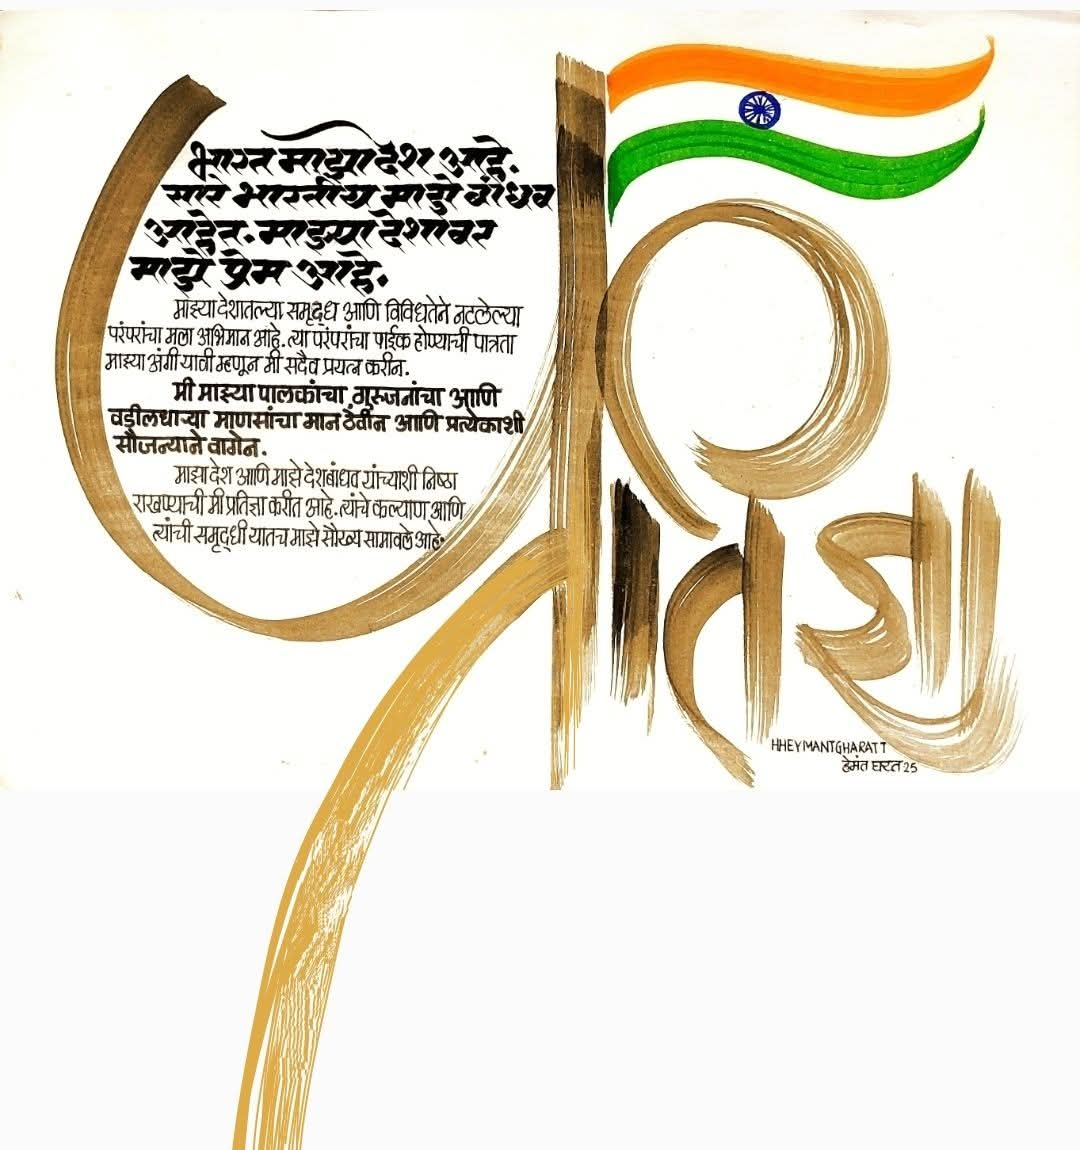 भारत माझा देश आहे.
सारे भारतीय माझे बांधव
आहेत. माझ्या देशावर
माझे प्रेम आहे.
माझ्या देशातल्या समृद्ध आणि विविधतेने नटलेल्या
परंपरांचा मला अभिमान आहे. त्या परंपरांचा पाईक होण्याची पात्रता
माझ्या अंगी यावी म्हणून मी सदैव प्रयत्न करीन.
मी माझ्या पालकांचा, गुरुजनांचा आणि
वडीलधाऱ्या माणसांचा मान ठेवीन आणि प्रत्येकाशी
सौजन्याने वागेन.
माझा देश आणि माझे देशबांधव यांच्याशी निष्ठा
राखण्याची मी प्रतिज्ञा करीत आहे. त्यांचे कल्याण आणि
त्यांची समृद्धी यातच माझे सौख्य सामावले आहे.
प्रतिज्ञा
HHEYMANTGHARATT
हेमंत घरत 25